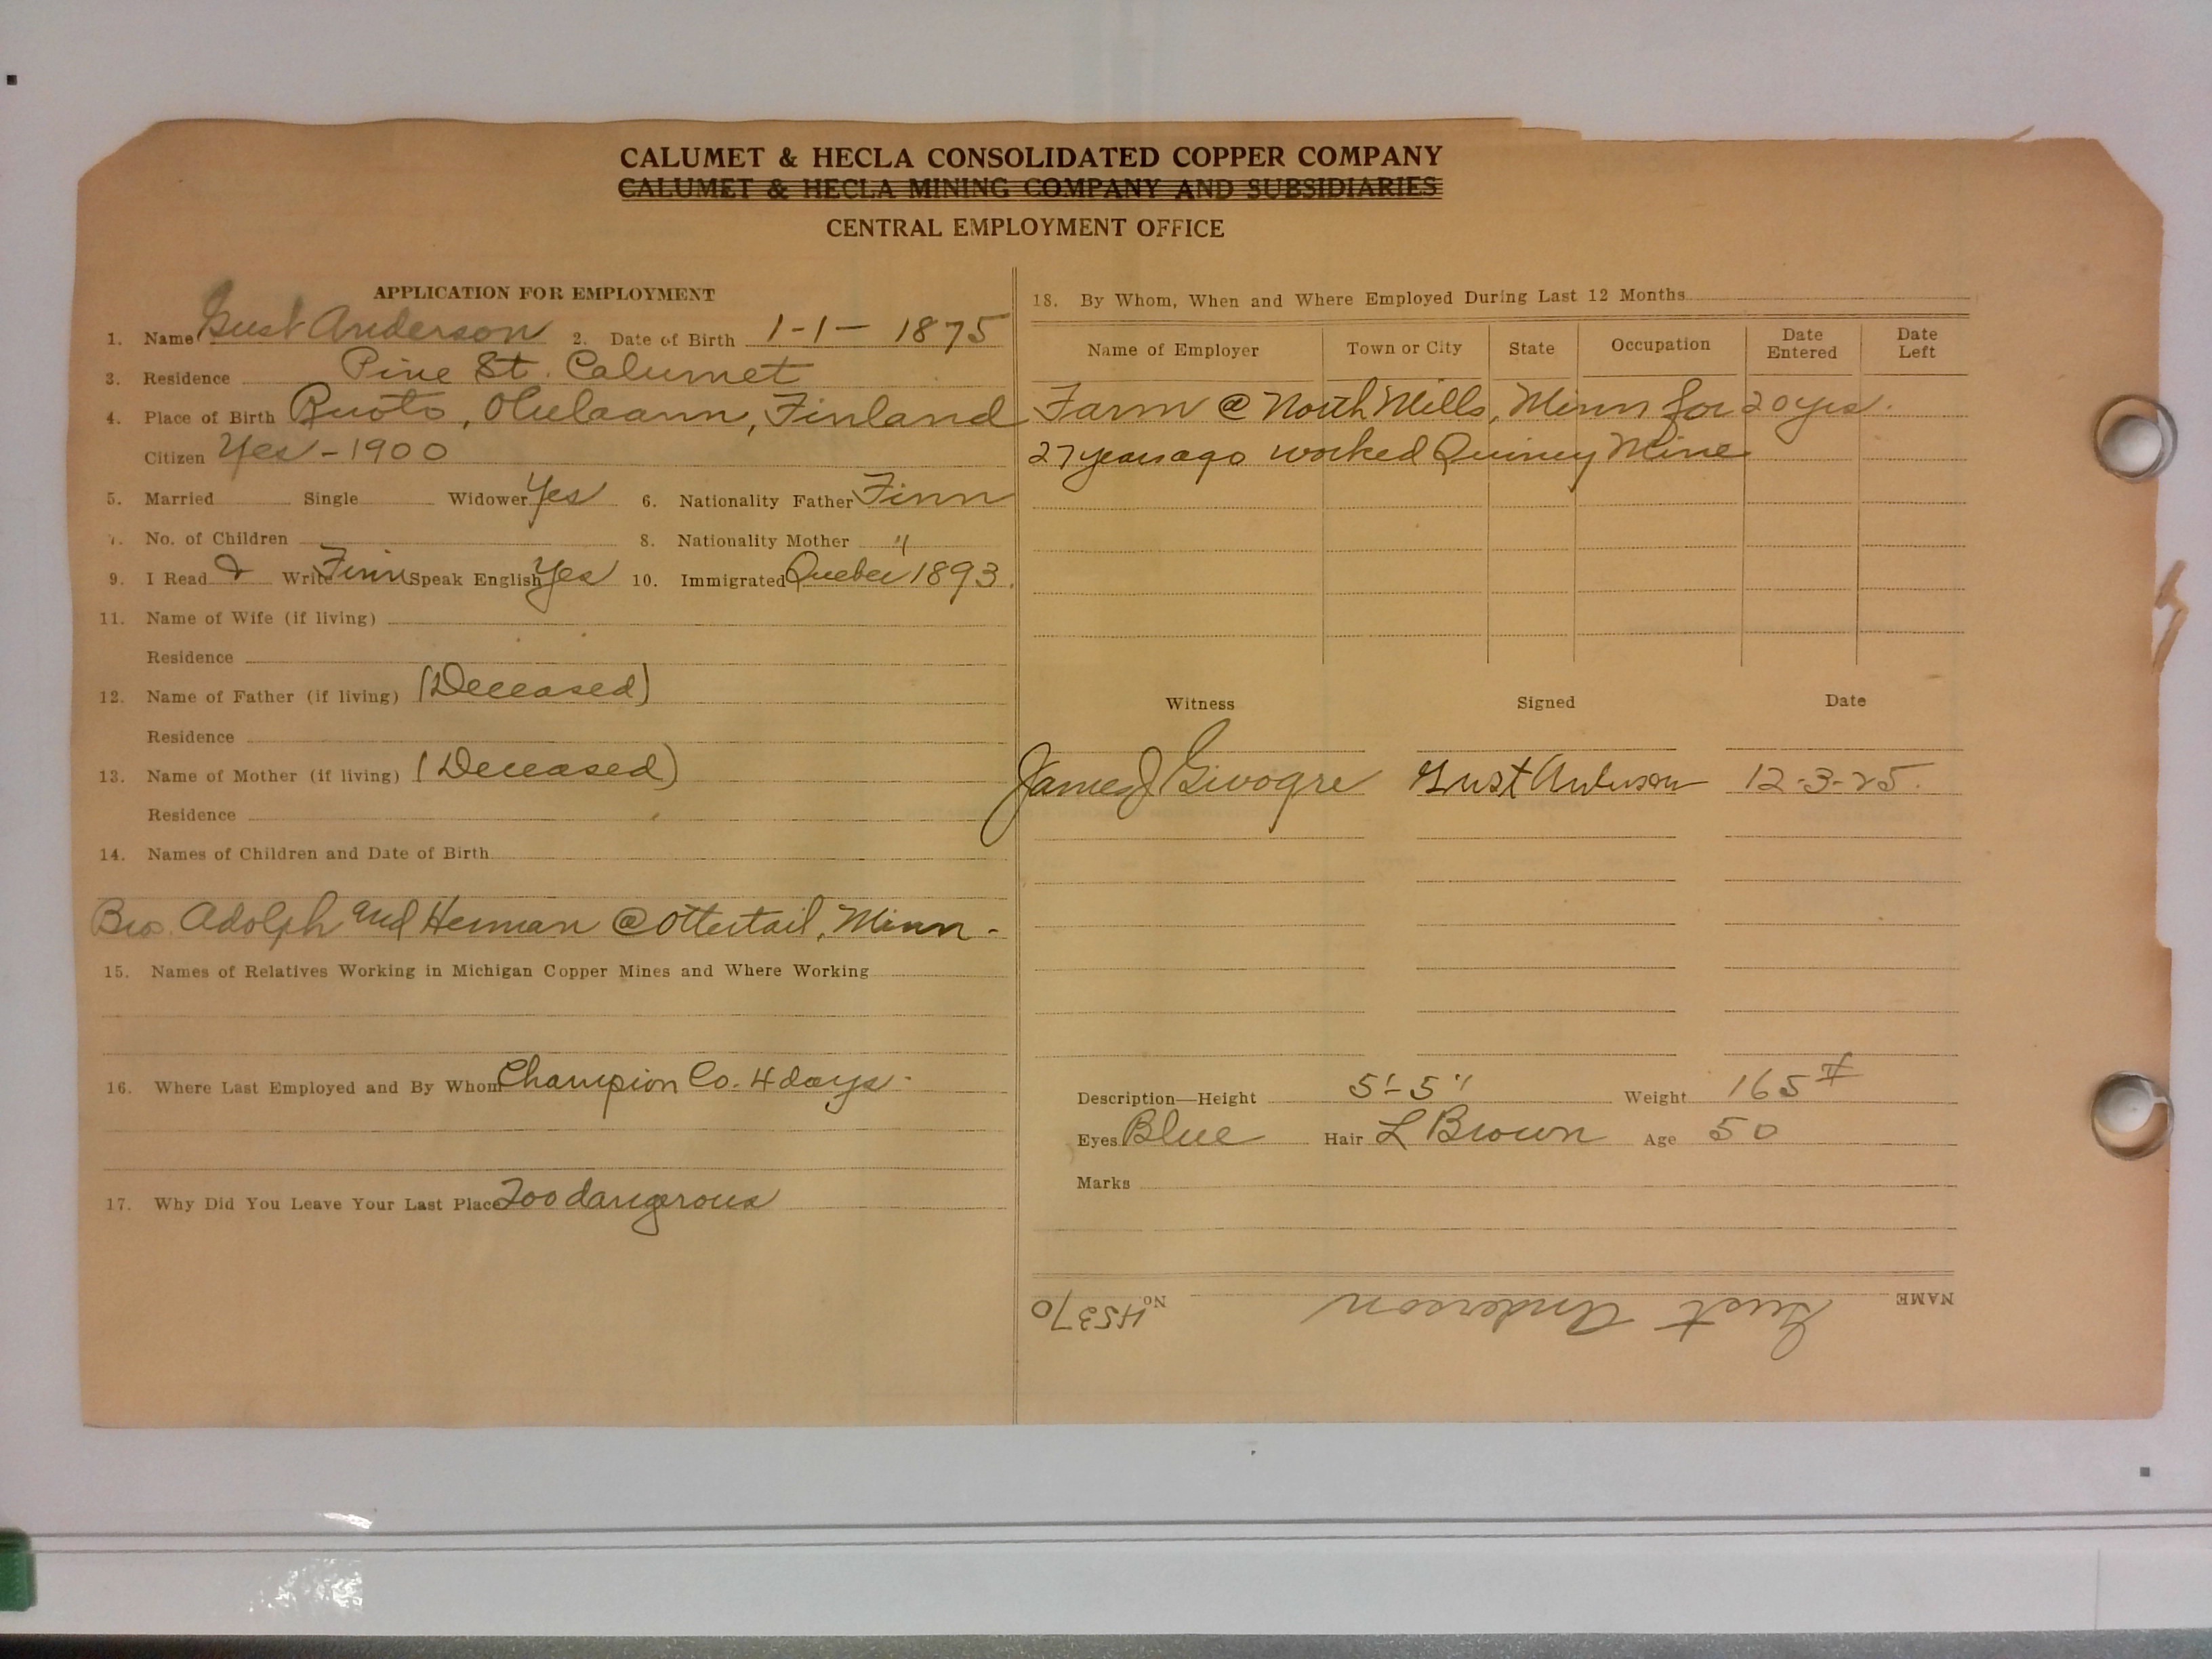 CALUMET & HECLA CONSOLIDATED COPPER COMPANY
CALUMET & HECLA MINING COMPANY AND SUBSIDIARIES
CENTRAL EMPLOYMENT OFFICE
APPLICATION FOR EMPLOYMENT
1. Name Gust Anderson 2. Date of Birth 1-1- 1875
3. Residence Pine St. Calumet
4. Place of Birth Finland
Citizen Yes - 1900
5. Married Single Widower Yes 6. Nationality Father Finn
7. No. of Children 8. Nationality Mother "
9. I Read & Write Finn Speak English Yes 10. Immigrated Quebec 1893.
11. Name of Wife (if living)
Residence
12. Name of Father (if living) (Deceased)
Residence
13. Name of Mother (if living) (Deceased)
Residence
14. Names of Children and Date of Birth
Bro. Adolph and Herman @ Ottertail, Minn -
15. Names of Relatives Working in Michigan Copper Mines and Where Working
16. Where Last Employed and By Whom Champion Co. 4 days -
17. Why Did You Leave Your Last Place Too dangerous
18. By Whom, When and Where Employed During Last 12 Months
Name of Employer Town or City State Occupation Date Entered Date Left
Farm @ North Mills, Minn for 20 yrs.
27 years ago worked Quincy Mine
Witness Signed Date
James J Givogre Gust Anderson 12-3-25.
Description—Height 5'-5" Weight 165#
Eyes Blue Hair L Brown Age 50
Marks
NAME Gust Anderson No. 45370